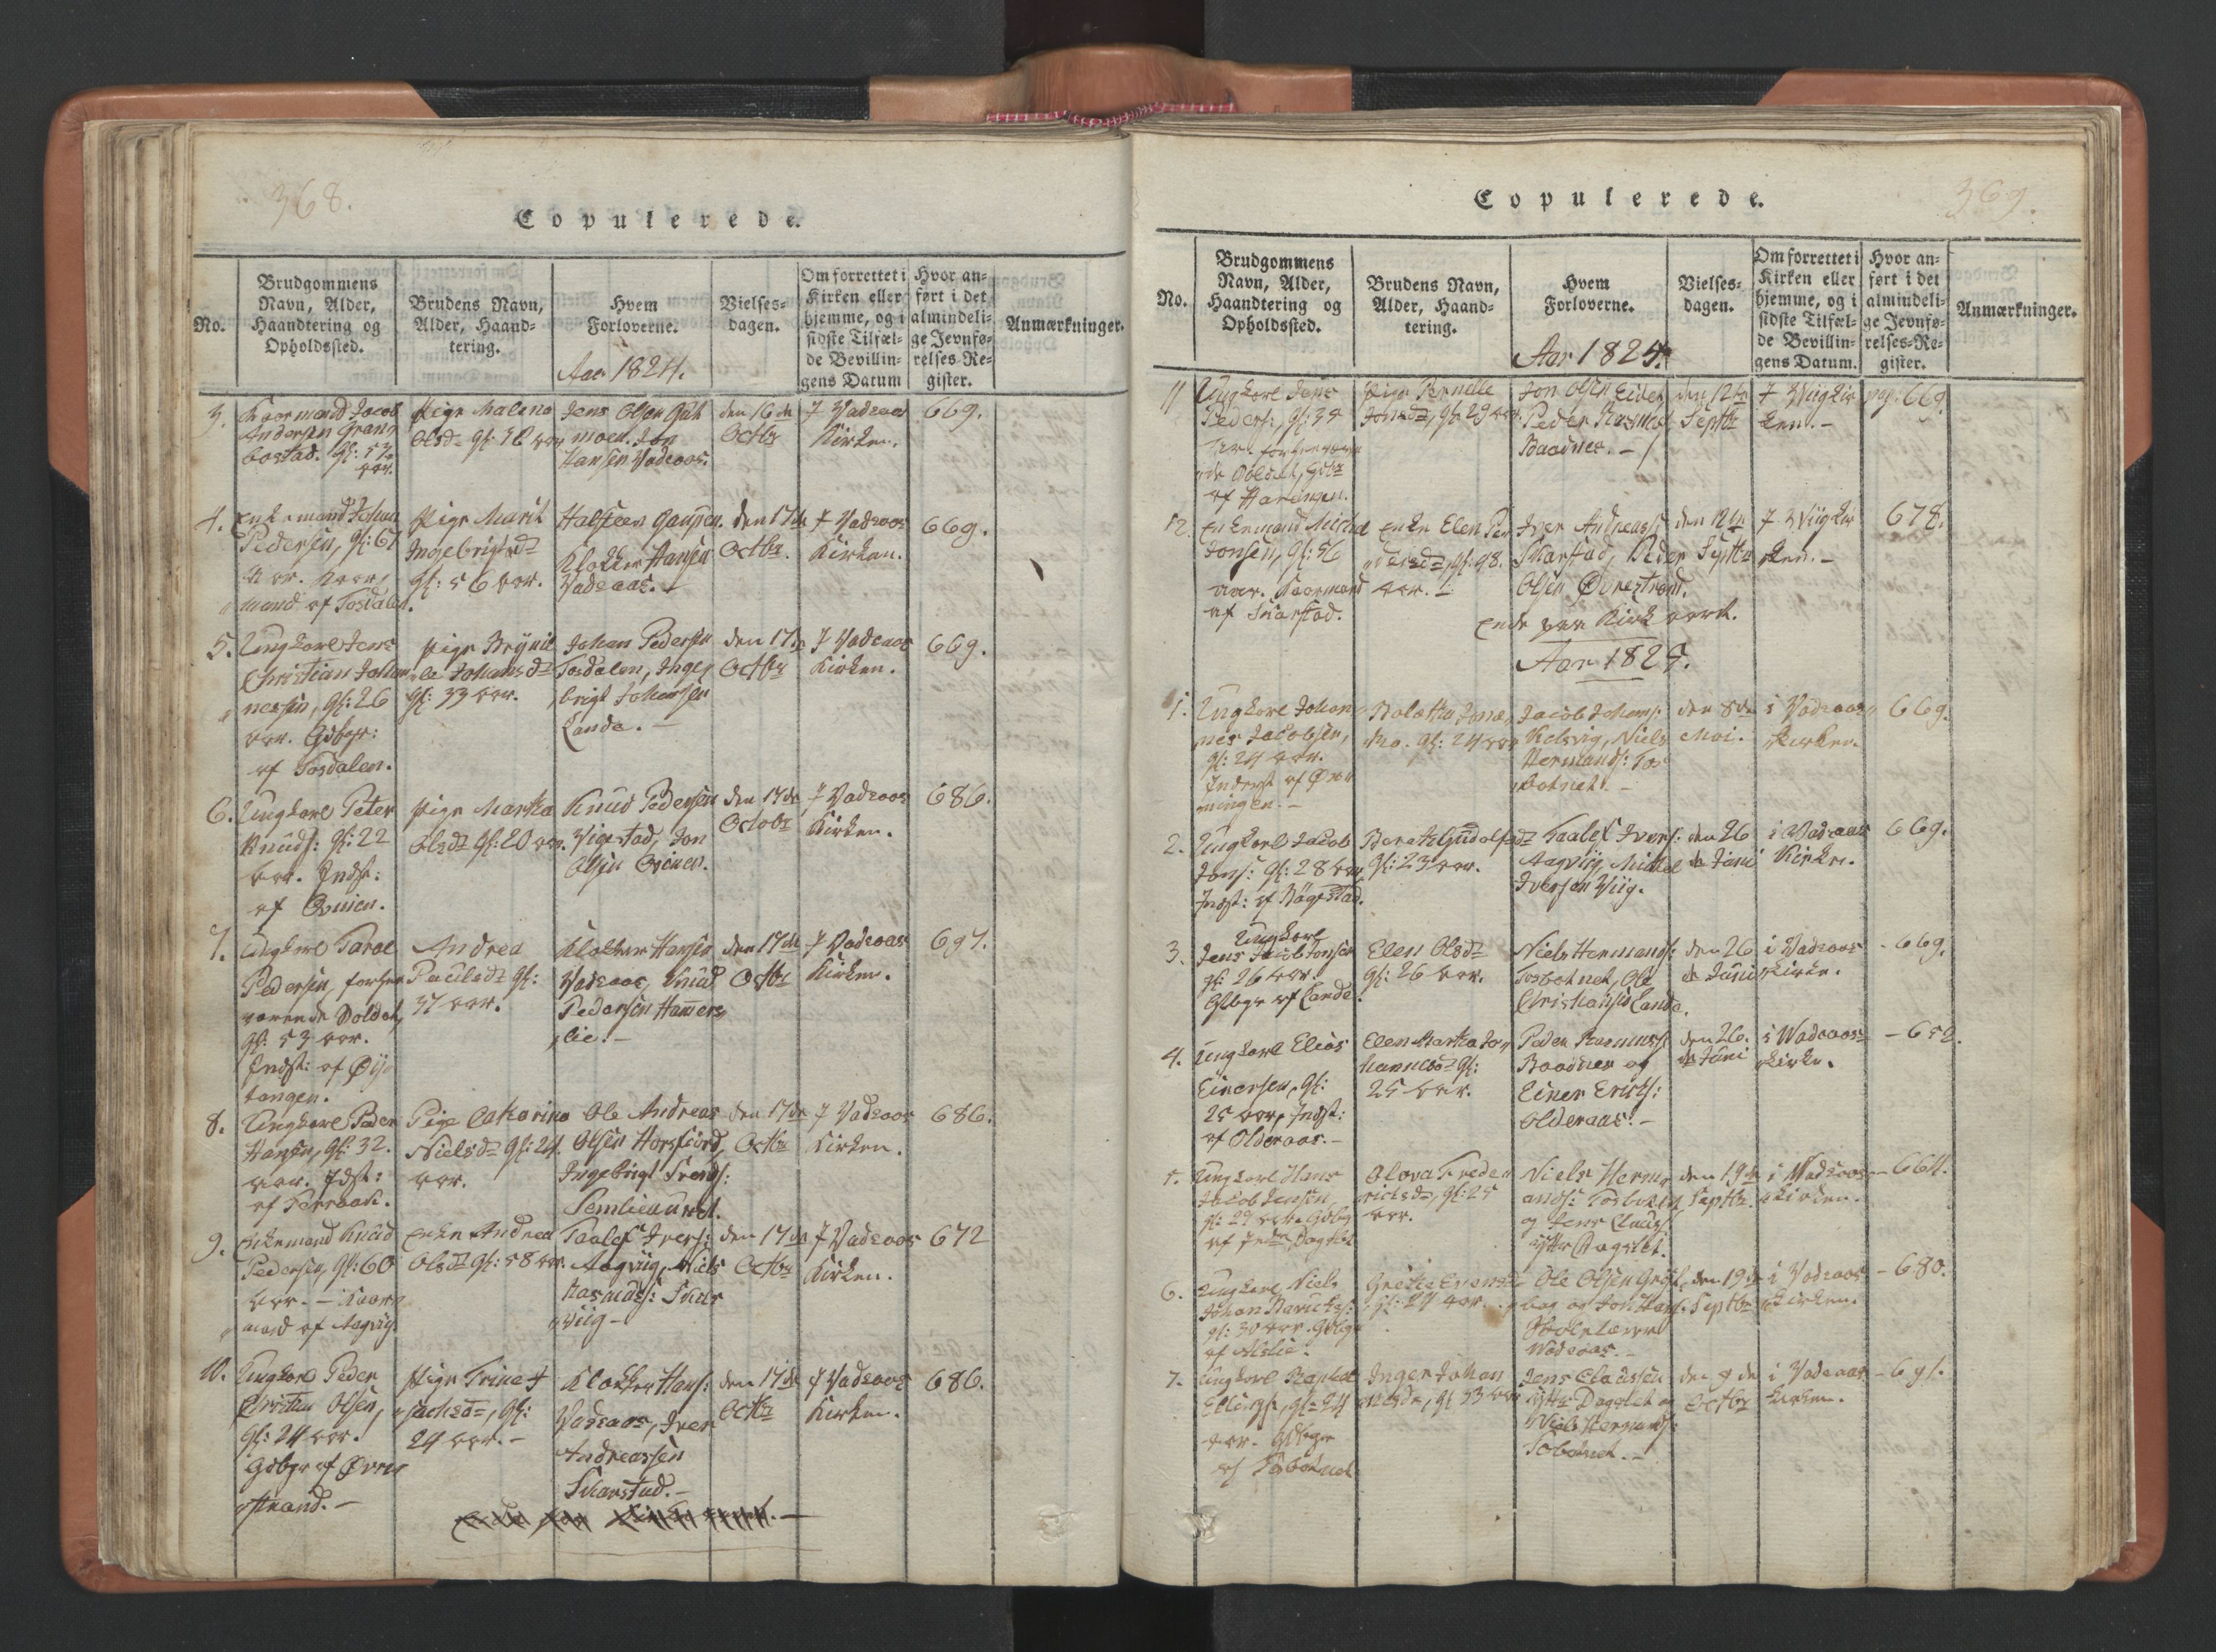 368.
Copulerede.
No.
Brudgommens
Navn, Alder,
Haandtering og
Opholdssted.
Brudens Navn,
Alder, Haand-
tering.
Hvem
Forloverne.
Aar 1824.
Vielses-
dagen.
Om forrettet i
Kirken eller
hjemme, og i
sidste Tilfæl-
de Bevillin-
gens Datum
Hvor an-
ført i det
almindeli-
ge Jevnfø-
relses-Re-
gister.
Anmærkninger.
3.
Kaarmand Jacob
Andersen Gran-
bostad. gl: 57
aar.
Pige Malena
Olsd. gl: 38 aar
Jens Olsen
moen. Jon
Hansen Vadsaas.
den 16de
Octbr
J Vadsaas
Kirken.
669.
4.
Enkemand Johan
Pedersen, gl: 67
Aar. Kaar-
mand af Tosdalen.
Pige Marit
Ingebrigtsd.
gl: 56 aar.
Halsteen
Klokker Hansen
Vadsaas. -
den 17de
Octbr.
J Vadsaas
Kirken.
669.
5.
Ungkarl Jens
Christian Johan-
nessen, gl: 26
aar. Gdbgr:
af Tosdalen.
Pige Brynil-
le Johansd.
gl: 33 aar.
Johan Pedersen
Tosdalen, Inge-
brigt Johansen
Lande. -
den 17de
Octbr
J Vadsaas
Kirken.
669.
6.
Ungkarl Peter
Knuds: gl: 22
aar. Indst:
af
Pige Martha
Olsd. gl: 20 aar.
Knud Pedersen
Vigestad, Jon
Olsen
den 17de
Octobr
J Vadsaas
Kirken.
686.
7.
Ungkarl Parel
Pedersen, forhen-
værende Soldat,
gl: 53 aar.
Indst: af Øy-
tangen.
Andrea
Paulsd. gl:
37 aar.
Klokker Hansen
Vadsaas, Knud
Pedersen Hamers-
lie. -
den 17de
Octbr
J Vadsaas
Kirken.
697.
8.
Ungkarl Peder
Hansen, gl: 32.
aar. Idst:
af
Pige Catharina
Nielsd. gl: 24.
aar.
Ole Andreas
Olsen Horsfiord,
Ingebrigt Svends:
Semlieaunet.
den 17de
Octbr
J Vadsaas
Kirken.
686.
9.
Enkemand Knud
Pedersen, gl: 60
aar. - Kaar-
mand af Aagviig.
Enke Andrea
Olsd. gl: 58 aar.
Taalef Ivers:
Aagviig, Niels
Rasmuds:
viig -
den 17de
Octbr
J Vadsaas
Kirken.
672
10.
Ungkarl Peder
Christian Olsen,
gl: 24 aar.
Gdbgr af Øvre
strand. -
Pige Trine
Isachsd., gl:
24 aar. -
Klokker Hans:
Vadsaas, Iver
Andreassen
Skarstad. -
den 17de
Octbr
J Vadsaas
Kirken.
686.
369.
Copulerede.
No.
Brudgommens
Navn, Alder,
Haandtering og
Opholdssted.
Brudens Navn,
Alder, Haand-
tering.
Hvem
Forloverne.
Aar 1824.
Vielses-
dagen.
Om forrettet i
Kirken eller
hjemme, og i
sidste Tilfæl-
de Bevillin-
gens Datum.
Hvor an-
ført i det
almindeli-
ge Jevnfø-
relses-Re-
gister.
Anmærkninger.
11
Ungkarl Jens
Peders:, gl: 34
forhenværen-
de Soldat, Gdbr
af Harangen.
Pige Pernille
Jonsd., gl: 29 aar.
Jon Olsen Eidet,
Peder Rasmus:
Baadnes. -
den 12te
Septbr
J Wiigkir-
ken. -
pag: 669.
12.
Enkemand Michel
Jonsen, gl: 56
aar. Kaarmand
af Skarstad.
Enke Elen Pe-
dersd., gl: 48.
aar. -
Iver Andreass:
Skarstad, Peder
Olsen Øvrestrand.
den 12te
Septbr
J Wiigkir-
ken. -
678.
Ende paa Kirkeaaret.
Aar 1825.
1.
Ungkarl Johan-
nes Jacobsen,
gl: 24 aar.
Inderst af
ningen. -
Bolætha Jona-
gl: 24 aar
Jacob Johans:
Kielsvig, Niels
Hermands: Tos-
botnet. -
den 8de
Mai.
i Vadsaas
Kirken.
669.
2.
Ungkarl Jacob
Jons: gl: 28 aar
Indst: af Bøgestad.
Bereth Gudolfsd.
gl: 23 aar.
Taalef Ivers:
Aagviig, Michel
Iversen Viig.
den 26
de Juni
i Vadsaas
Kirken.
669.
3.
Ungkarl
Jens Jacob Jonsen
gl: 26 aar.
Gdbgr af Lande.
Elen Olsd.
gl: 26 aar.
Niels Hermands:
Tosbotnet, Ole
Christiansen Lande.
den 26
de Juni
i Vadsaas
Kirke.
- 669.
4.
Ungkarl Elias
Einersen, gl:
25 aar, Indst:
af Olderaas. -
Elen Martha Jo-
hannesd. gl:
25 aar.
Peder Rasmus:
Baadnes og
Einer Erichs:
Olderaas. -
den 26.
de Juni
i Wadsaas
Kirke.
- 652.
5.
Ungkarl Hans
Jacob Jensen,
gl: 29 aar. Gdbgr
af Indre Dagslet
Olava Frede-
richsd., gl: 25
aar.
Niels Herm-
ands: Tosbotnet
og Jens Clauss:
yttr Dagslet.
den 19de
Septbr.
i Wadsaas
Kirken.
- 664.
6.
Ungkarl Niels
Johan
gl: 30 aar. Gdbgr
af
Evensd.
gl: 27 aar.
Ole Olsen
og Jon Hans:
Skolelærer
Wadsaas. -
den 19de
Septbr
i Vadsaas
Kirken.
- 680.
7.
Ungkarl
Ellings:, gl: 24
aar. Gdbgr
af Tosbotnet
Inger Johan-
nesd., gl: 33 aar
Jens Claussen
yttr Dagslet og
Niels Hermands:
Tosbotnet. -
den 9de
Octbr
i Vadsaas
Kirken.
- 691.